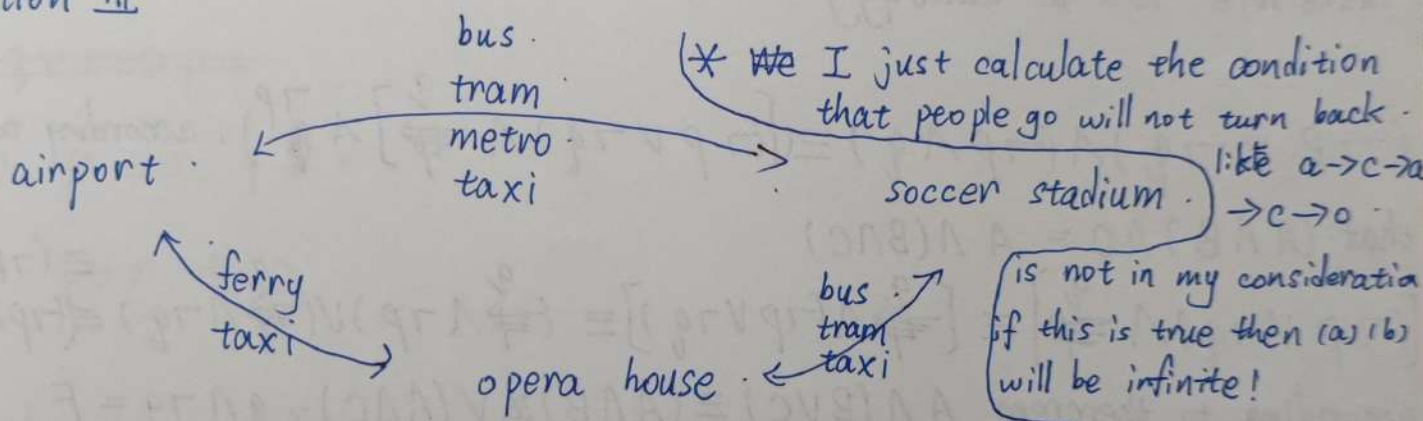 tion III
bus.
tram.
metro.
taxi
airport.
soccer stadium.
ferry
taxi
opera house.
bus.
tram
taxi
* We I just calculate the condition
that people go will not turn back.
like a->c->a
->c->o.
is not in my consideratio
if this is true then (a)(b)
will be infinite!